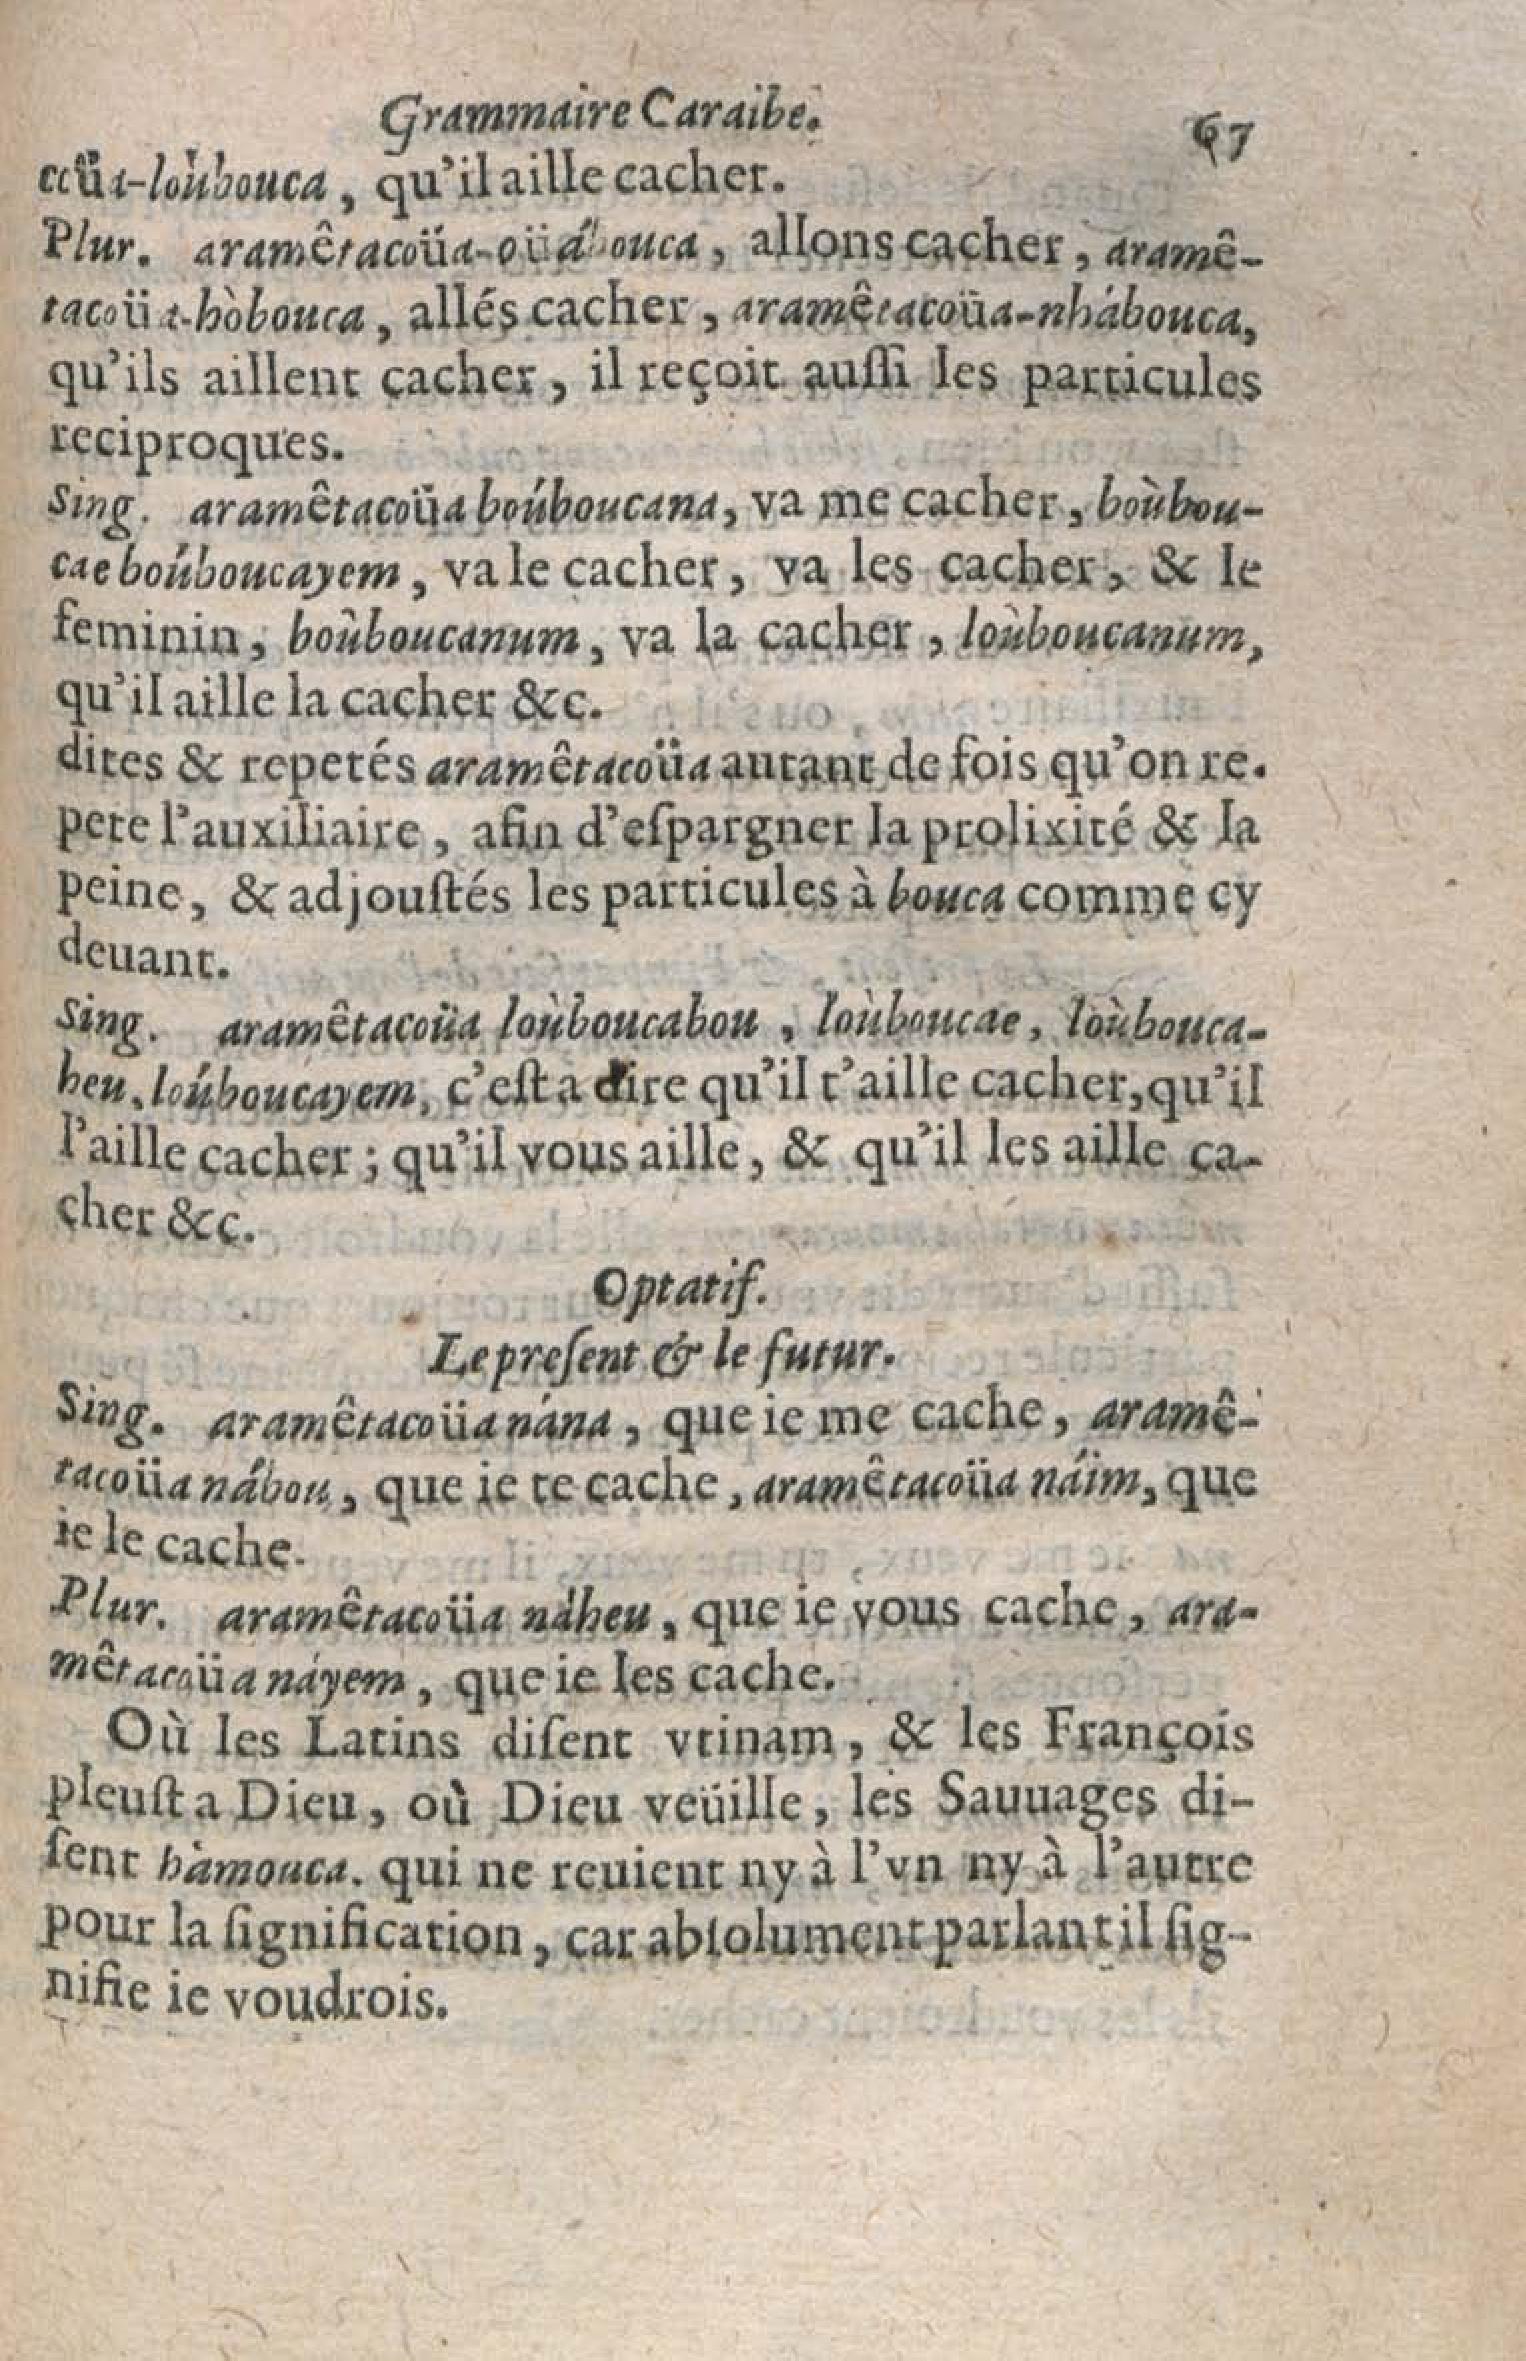 Grammaire Caraibe. 67
ccüa-loùbouca, qu'il aille cacher.
Plur. aramêtacoüa-oüábouca, allons cacher, aramê-
tacoüa-hòbouca, allés cacher, aramêtacoüa-nhábouca,
qu'ils aillent cacher, il reçoit auſſi les particules
reciproques.
Sing. aramêtacoüa boúboucana, va me cacher, boùbou-
cae boúboucayem, va le cacher, va les cacher, & le
feminin, boùboucanum, va la cacher, loùboucanum,
qu'il aille la cacher &c.
dites & repetés aramêtacoüa autant de fois qu'on re.
pete l'auxiliaire, afin d'eſpargner la prolixité & la
peine, & adjouſtés les particules à bouca comme cy
deuant.
Sing. aramêtacoüa loùboucabou, loùboucae, loùbouca-
heu, loúboucayem, c'eſt a dire qu'il t'aille cacher, qu'il
l'aille cacher; qu'il vous aille, & qu'il les aille ca-
cher &c.
Optatif.
Le preſent & le futur.
Sing. aramêtacoüa nána, que ie me cache, aramê-
tacoüa nábou, que ie te cache, aramêtacoüa náim, que
ie le cache.
Plur. aramêtacoüa náheu, que ie vous cache, ara-
mêtacoüa náyem, que ie les cache.
Où les Latins diſent vtinam, & les François
pleuſt a Dieu, où Dieu veüille, les Sauuages di-
ſent hàmouca. qui ne reuient ny à l'vn ny à l'autre
pour la ſignification, car abſolument parlant il ſig-
nifie ie voudrois.